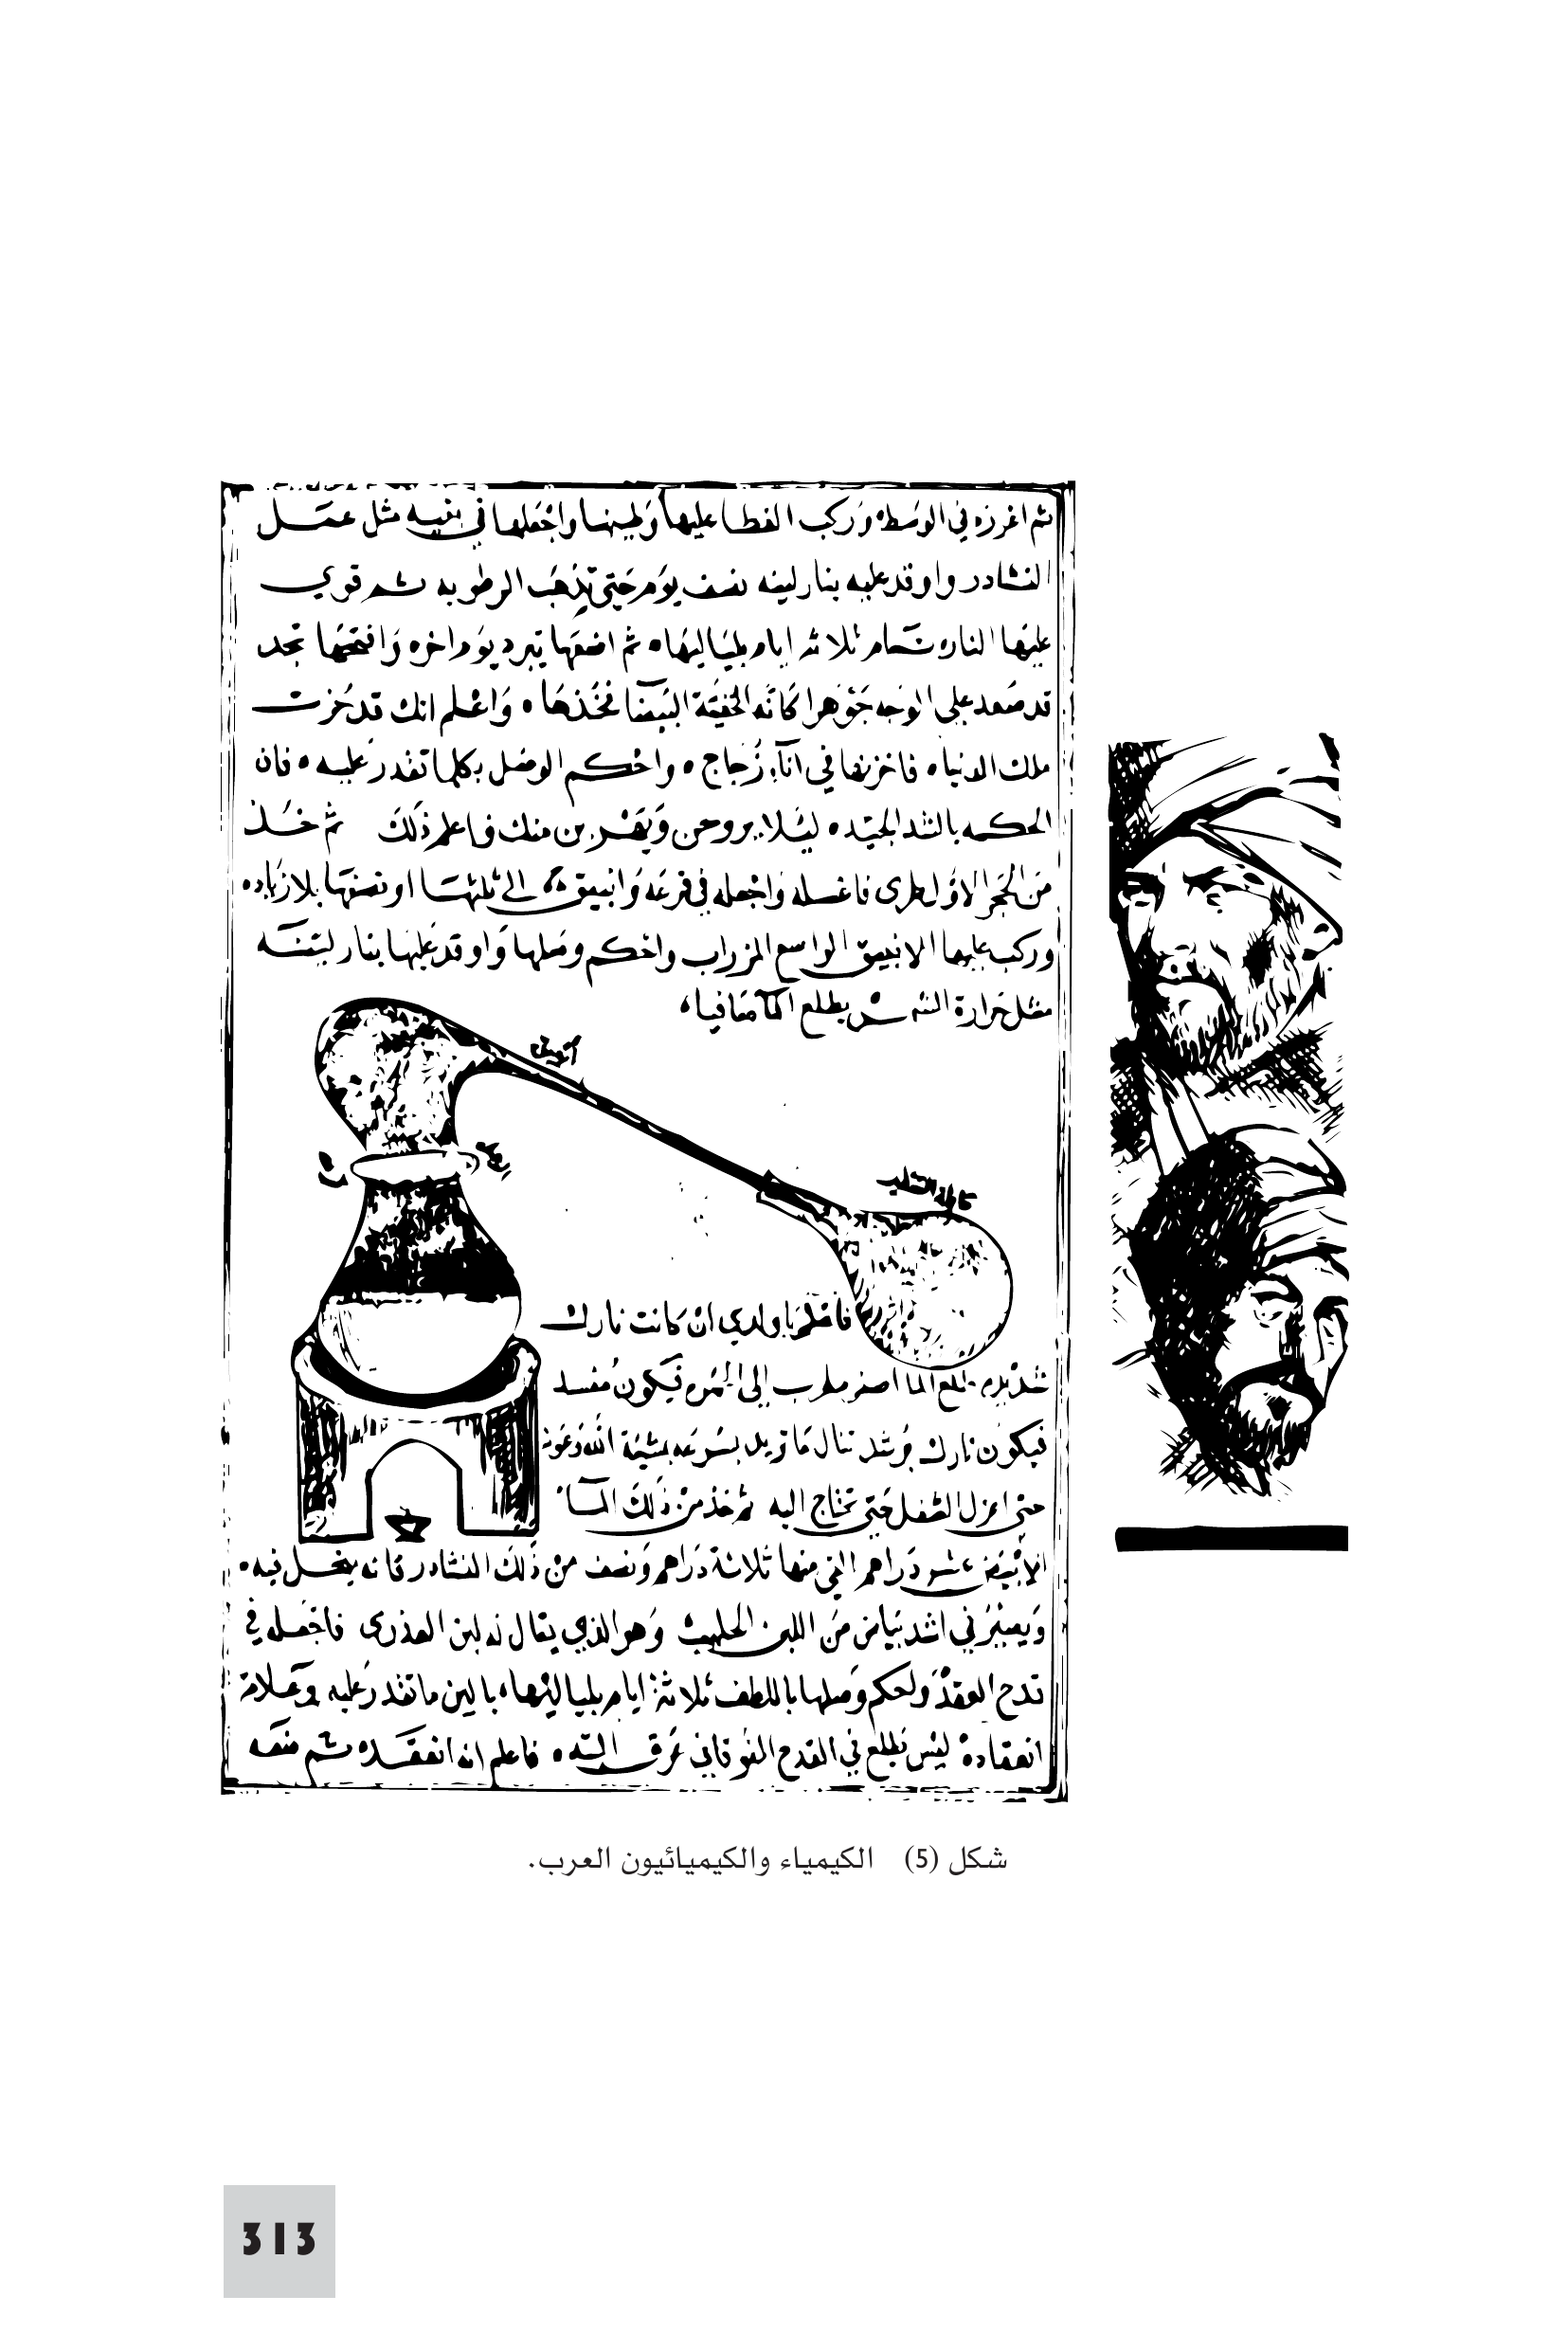 ثم اغرزه في الوسطه وركب الغطا عليها وطينها واجعلها في مثل عمل
النشادر واوقد عليه بنار لينه نصف يوم حتى تذهب الرطوبه ثم قوي
عليها الناره تمام ثلاثه ايام بلياليهاه ثم اضعها تبرد يوم اخره وافتحها تجد
قد صعد على الوجه جوهرا كانه البيضا فخذهاه واعلم انك قد حزت
ملك الدنياه فاخزنها في اناء زجاج ه واحكم الوصل بكلما تقدر عليه ه فان
الحكمه بالشد الجيده ليلا يروحن ويفرين منك فاعلم ذلك ثم خذ
من الحجر الاول طرى فاغسله واجعله في قرعه وانبيق الى ثلثها او نصفها بلا زياده
وركب عليها الانبيق الواسع المزراب واحكم وصلها واوقد عليها بنار
مثل حرارة الشمس يطلع الما صافياه
القابله
فاعلم يا ولدي ان كانت نارك
شديده طلع الما اصفر الى الحمره فيكون مفسد
فيكون نارك تنال ما تريد بسرعه بمشية الله وعونه
حتى اعزل الثفل حتى تحتاج اليه ثم خذ من ذلك الما
الابيض عشر دراهم القي منها ثلاثة دراهم ونصف من ذلك النشادر فانه ينحل فيه ه
ويصير في اشد بياض من اللبن الحليب وهو الذي يقال له لبن العذرى فاجعله في
قدح العقد ولحكم وصلها باللطف ثلاثة ايام بلياليها بالين ما تقدر عليه وعلامة
انعقاده ليس يطلع في القدح الفوقاني عرق فاعلم انه انعقده ثم
شكل (5) الكيمياء والكيميائيون العرب.
313